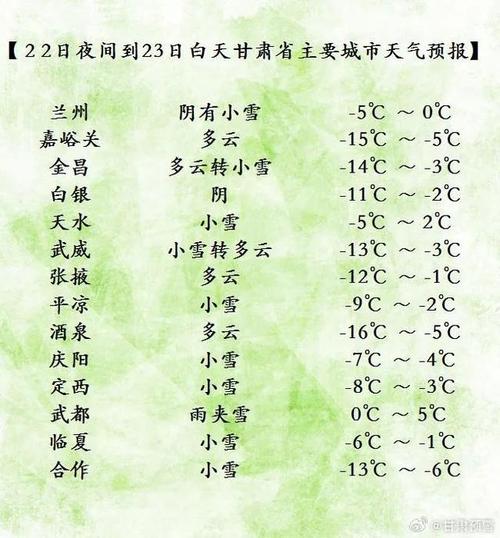 【22日夜间到23日白天甘肃省主要城市天气预报】
兰州 阴有小雪 -5℃ ～ 0℃
嘉峪关 多云 -15℃ ～ -5℃
金昌 多云转小雪 -14℃ ～ -3℃
白银 阴 -11℃ ～ -2℃
天水 小雪 -5℃ ～ 2℃
武威 小雪转多云 -13℃ ～ -3℃
张掖 多云 -12℃ ～ -1℃
平凉 小雪 -9℃ ～ -2℃
酒泉 多云 -16℃ ～ -5℃
庆阳 小雪 -7℃ ～ -4℃
定西 小雪 -8℃ ～ -3℃
武都 雨夹雪 0℃ ～ 5℃
临夏 小雪 -6℃ ～ -1℃
合作 小雪 -13℃ ～ -6℃
@甘肃预警